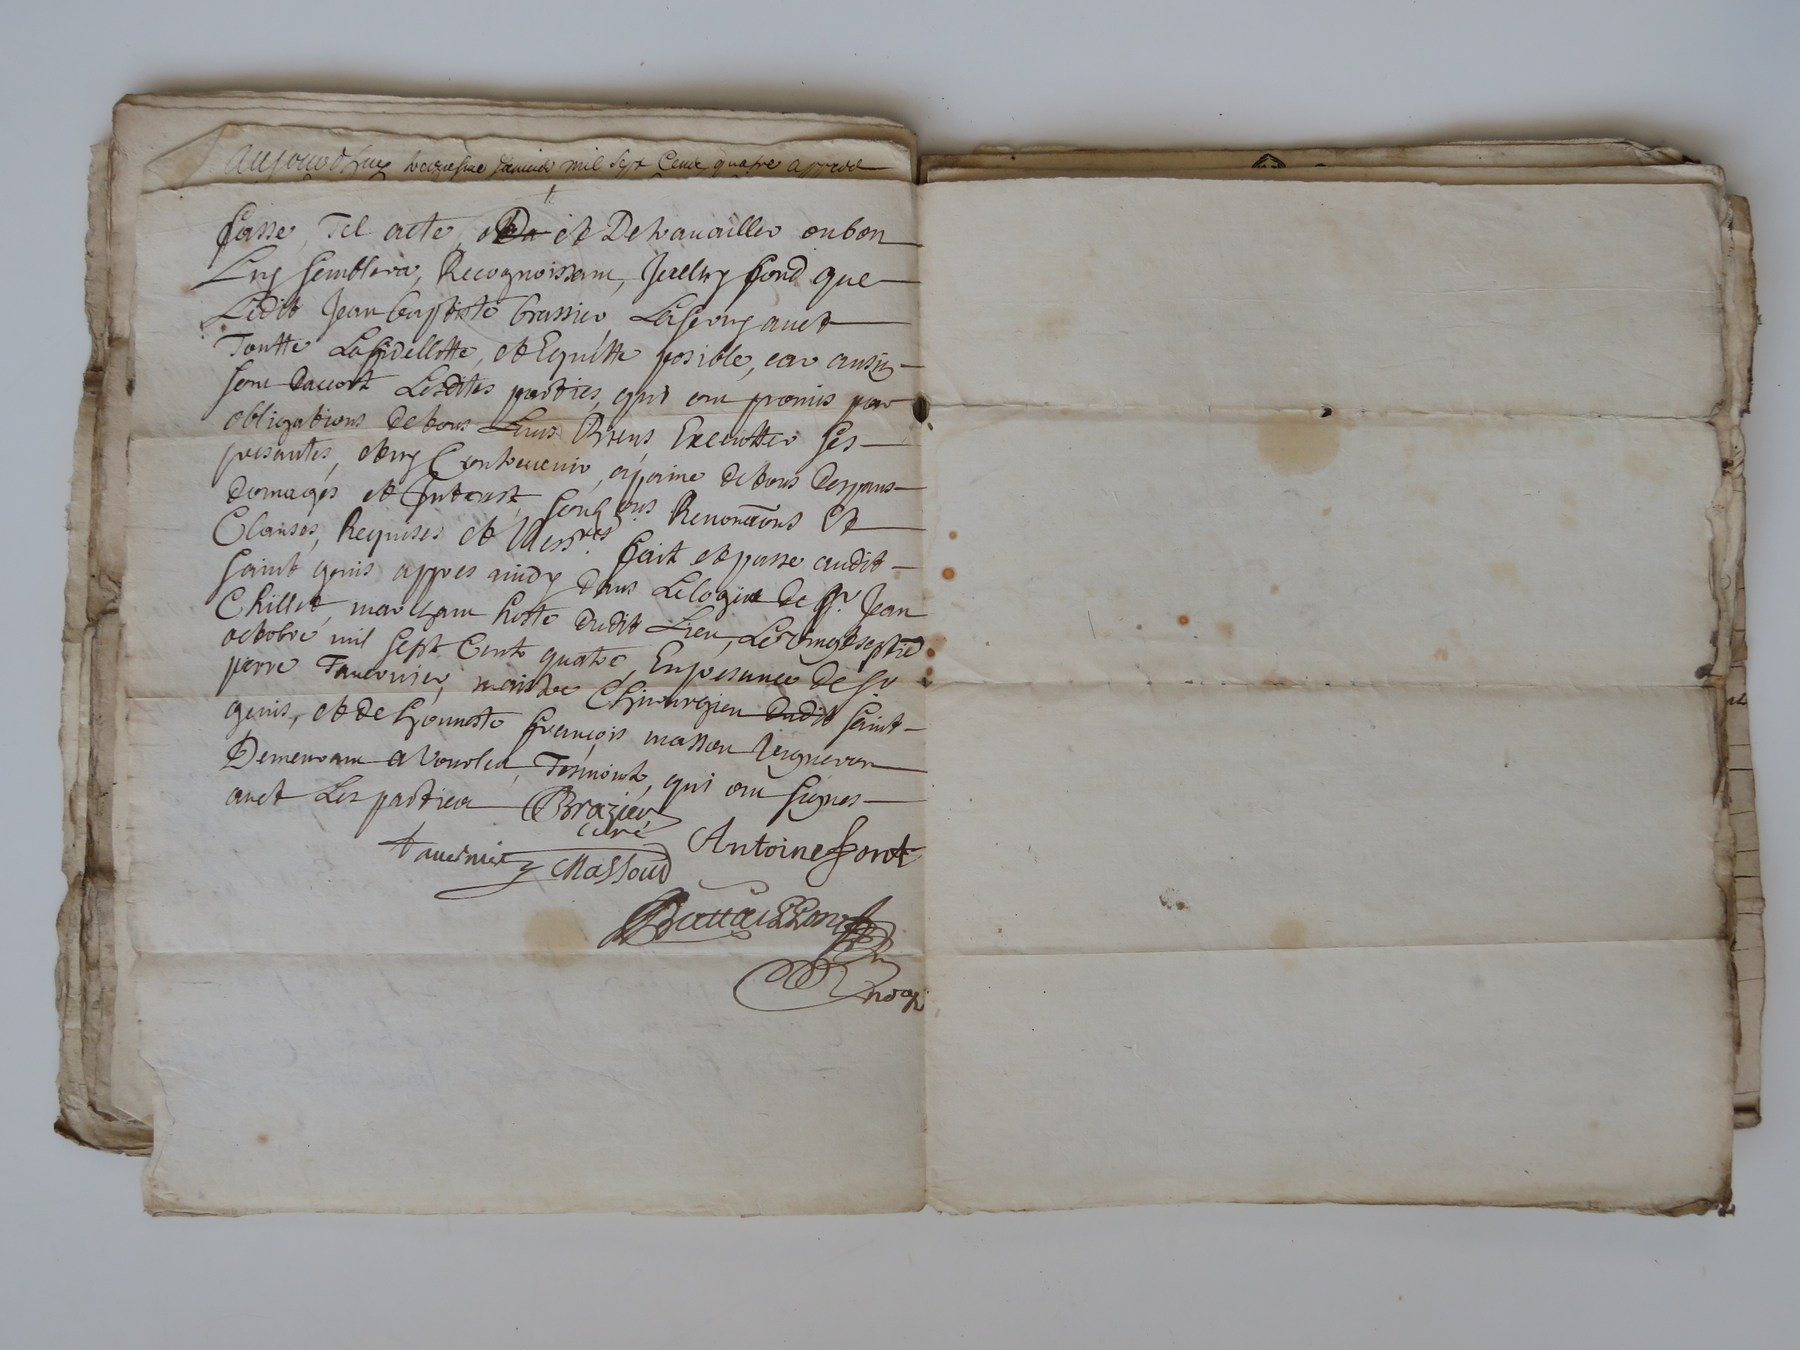 Aujourdhuy treiziesme Janvier mil sept Cent quatre appres
fasse, Tel acte, et De travailler ou bon
Luy semblera, Recognoissant, Jcelluy font que
Ledit Jean baptiste brassier La servy avec
Toutte La fidellitte, et Equitte posible, car ainsy
sont daccort Lesdites parties, qui ont promis par
obligations de tous Leurs Biens, Executter ses
presantes, et ny Contrevenir, a paine de tous despans
domages et Interest, soubs Renonċons Et
Clauses, Requises et fait et passe audit
saint genis appres midy dans Le logis de sr. Jean
Chillet, marchant hoste dudit Lieu, Le vingt septie
octobre, mil sept Cent quatre, En presance de sr.
pierre Tavernier, maistre Chirurgien dudit saint
genis, et de honneste françois masson vigneron
Demeurant a Vourles, Tesmoins, qui ont signes
avec Les parties Brazier
curé
tavernier Massoud Antoine font
Battaillon